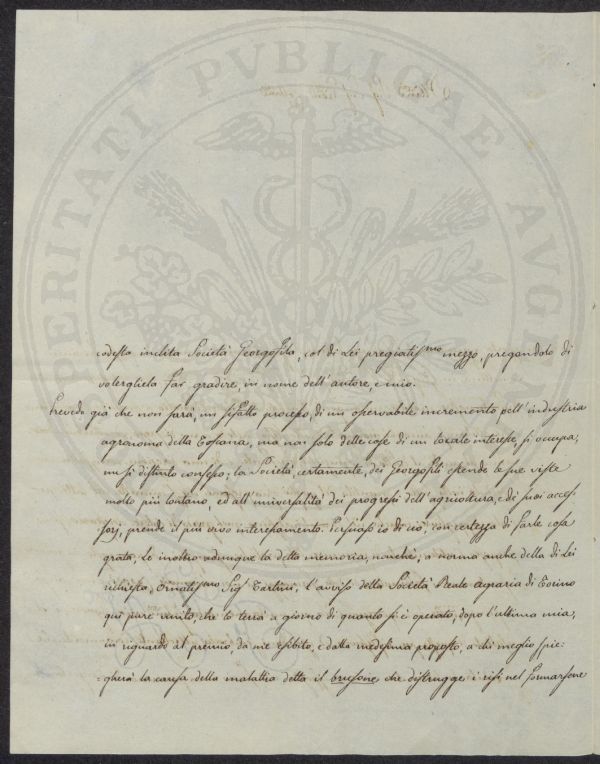 PROSPERITATI PVBLICAE AVGENDAE
codesta inclita Società Georgofila, col di Lei pregiatissmo mezzo, pregandolo di
volergliela far gradire, in nome dell'autore, e mio.
Prevedo già che non sarà, un sifatto processo, di un osservabile incremento pell'industria
agronoma della Toscana, ma non solo delle cose di un locale interesse, si occupa,
un sì distinto consesso; la Società, certamente, dei Georgofili estende le sue viste
molto più lontano, ed all'universalità dei progressi dell'agricoltura, e di suoi acces
sorj, prende il più vivo interessamento. Persuaso io di ciò, con certezza di farle cosa
grata, Le inoltro adunque la detta memoria, nonchè, a norma anche della di Lei
richiesta, ornatissmo Sigr Tartini, l'avviso della Società Reale Agraria di Torino
qui pure unito, che lo terrà a giorno di quanto si è operato, dopo l'ultima mia,
in riguardo al premio, da me esibito, e dalla medesima proposto, a chi meglio spie=
=gherà la causa della malattia detta il brusone che distrugge i risi nel formarsene